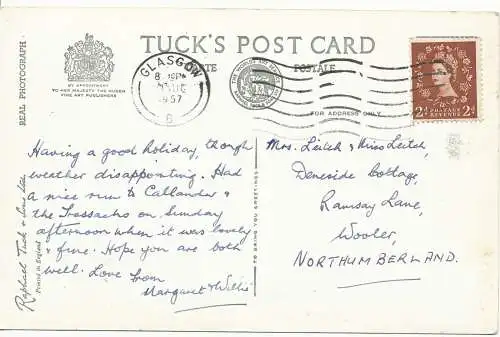 TUCK'S POST CARD
CARTE POSTALE
BY APPOINTMENT
TO HER MAJESTY THE QUEEN
FINE ART PUBLISHERS
REAL PHOTOGRAPH
GLASGOW
1957
6
FOR ADDRESS ONLY
2D POSTAGE REVENUE 2D
Having a good holiday, though
weather disappointing. Had
a nice run to Callander &
the Trossachs on Sunday
afternoon when it was lovely
& fine. Hope you are both
well. Love from
Margaret & Willie
Raphael Tuck & Sons Ltd.
Printed in England
TO BRING YOU GREETINGS
Mrs. Leitch & Miss Leitch,
Deneside Cottage,
Ramsay Lane,
Wooler,
NORTHUMBERLAND.